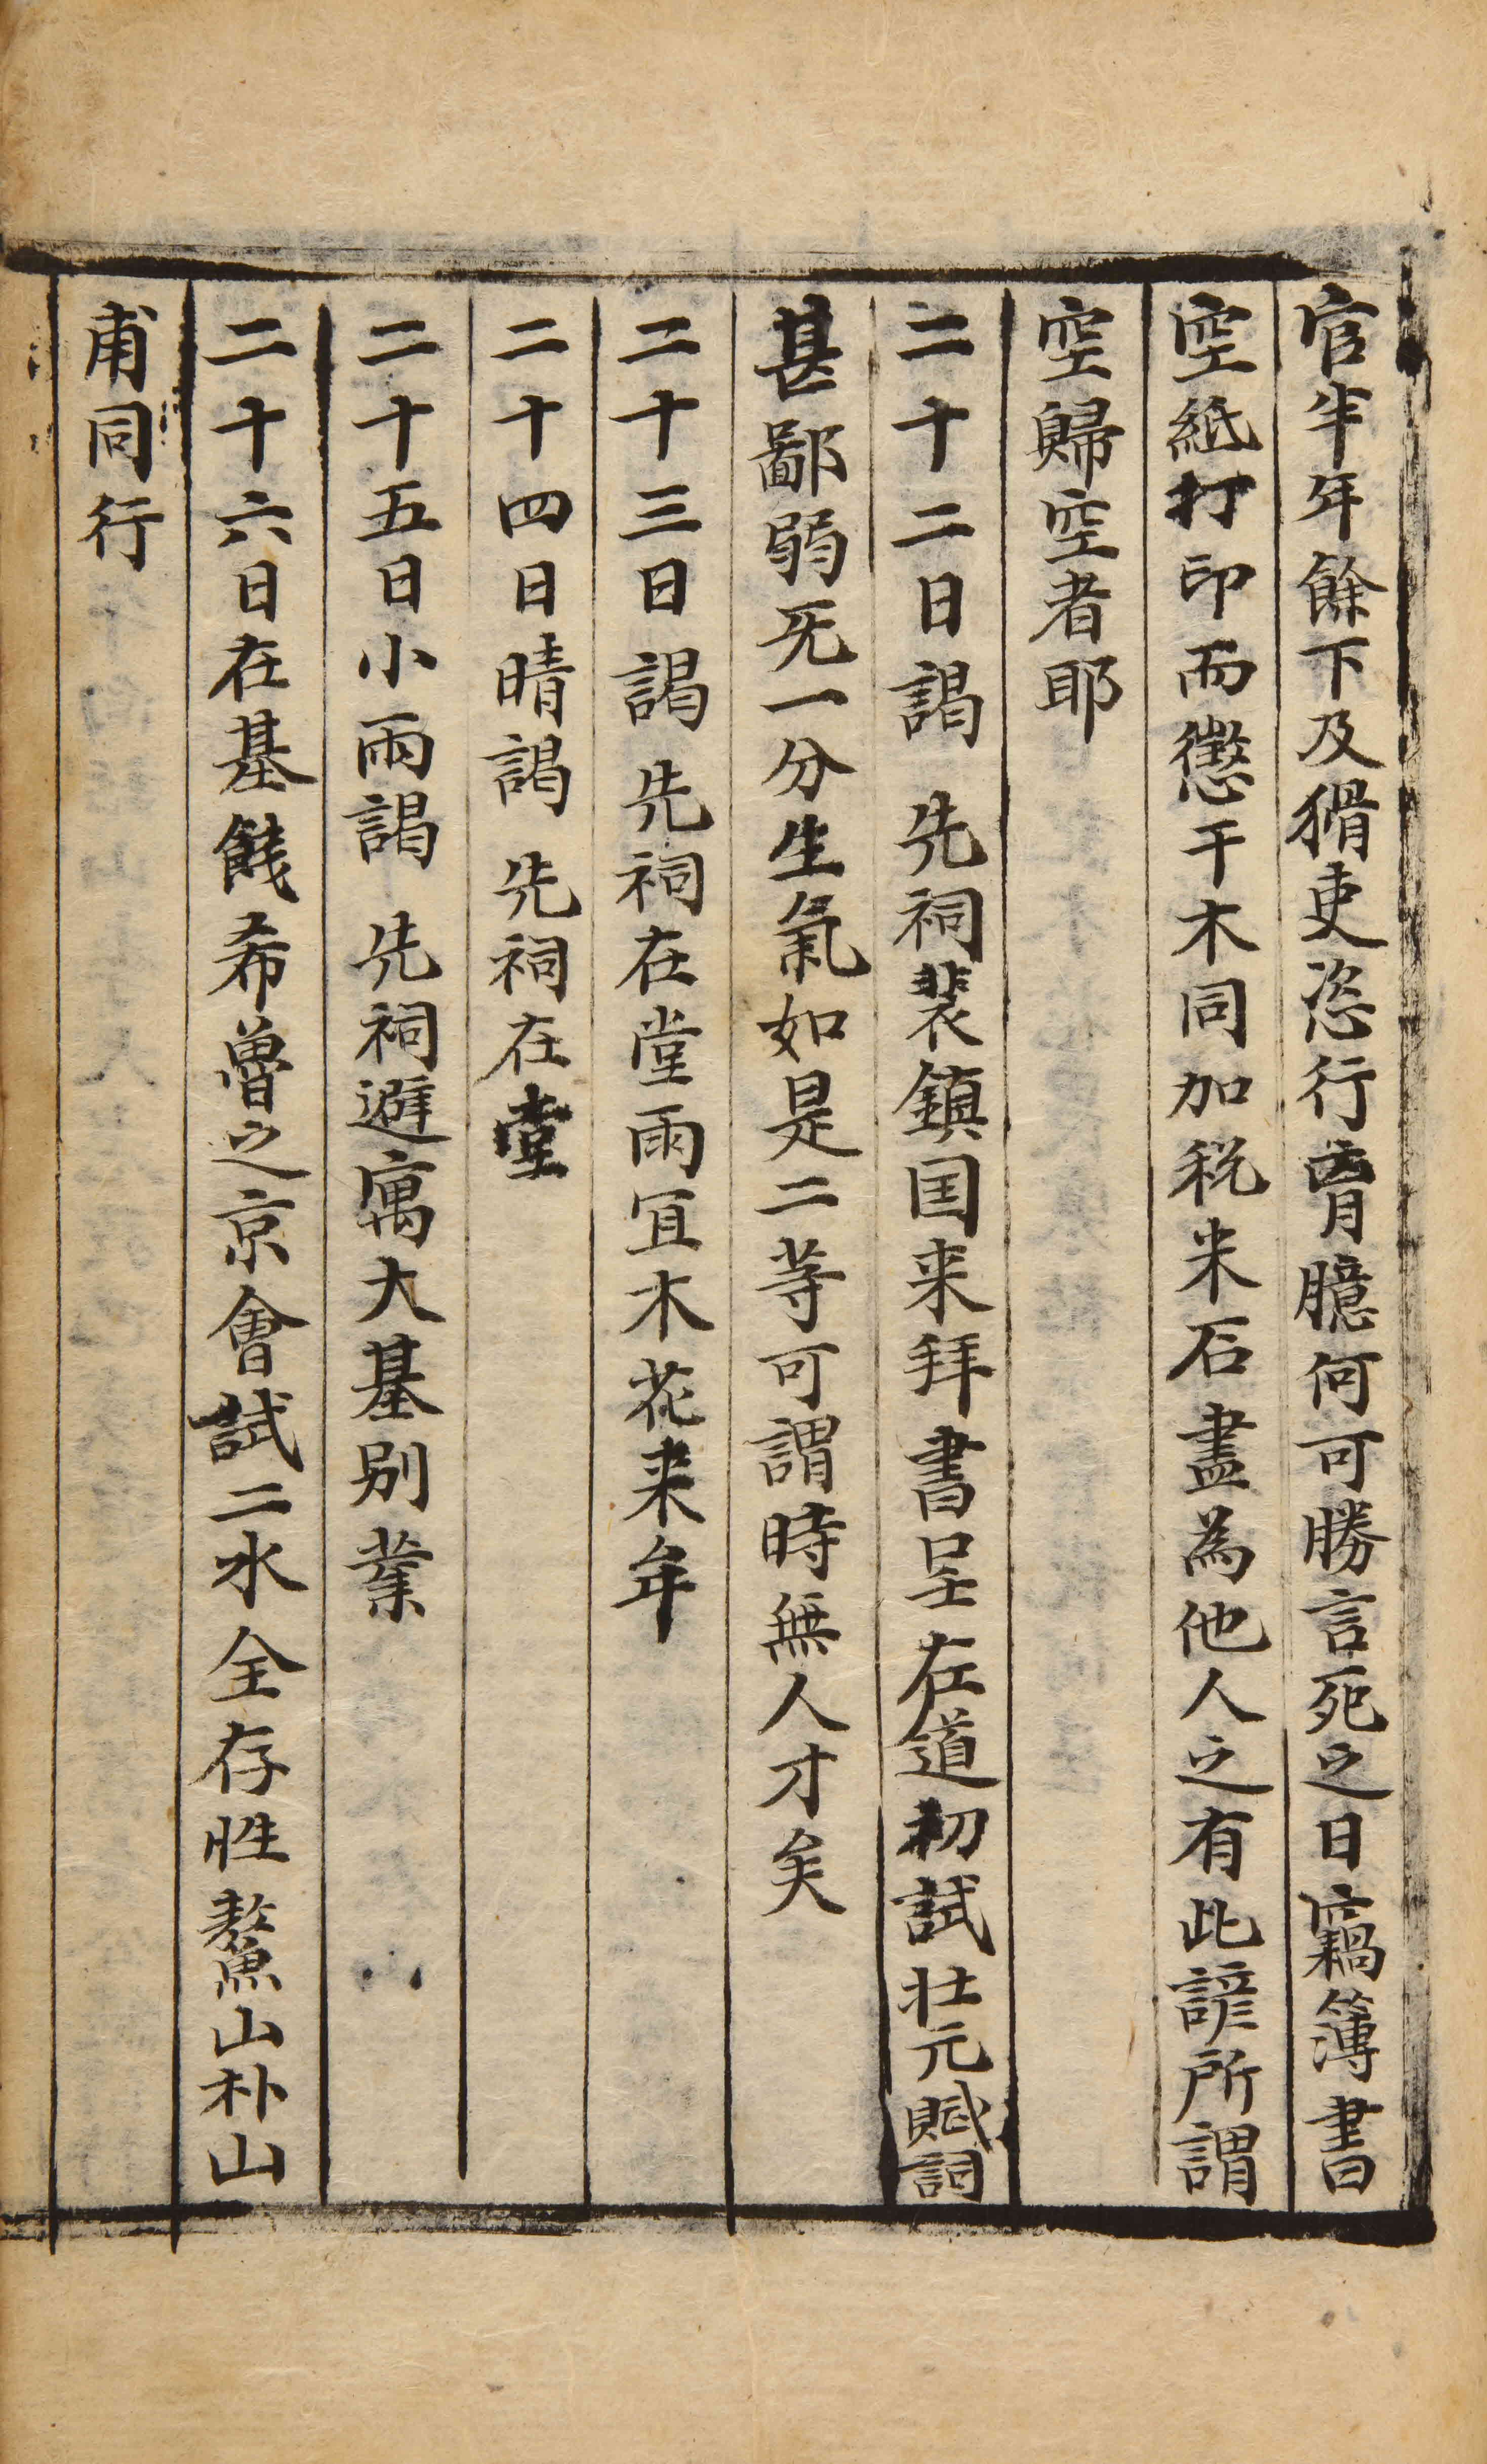 官半年餘下及猾吏恣行胷臆何可勝言死之日竊簿書
空紙打印而懲干木同加稅米石盡為他人之有此諺所謂
空歸空者耶
二十二日謁 先祠裴鎮国来拜書呈左道初試壮元賦詞
甚鄙弱旡一分生氣如是二等可謂時無人才矣
二十三日謁 先祠在堂雨冝木花来年
二十四日晴謁 先祠在堂
二十五日小雨謁 先祠避寓大基別業
二十六日在基餞希曾之京會試二水全存性鰲山朴山
甫同行